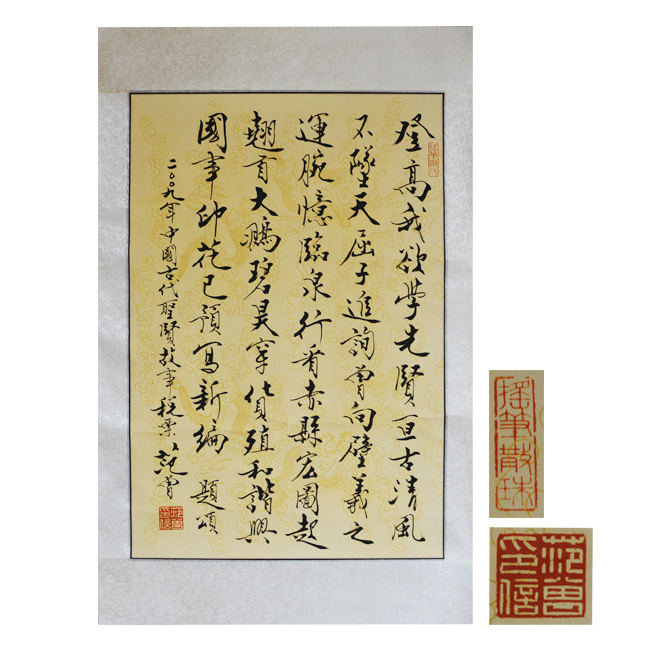 登高我欲學先賢亘古清風
不墜天屈子追詢曾向壁羲之
運腕憶臨泉行看赤縣宏圖起
翹首大鵬碧昊穿貨殖和諧興
國事印花已預寫新編 題頌
二〇〇九年中國古代聖賢故事税票 范曾
搖筆散珠
范曾印信